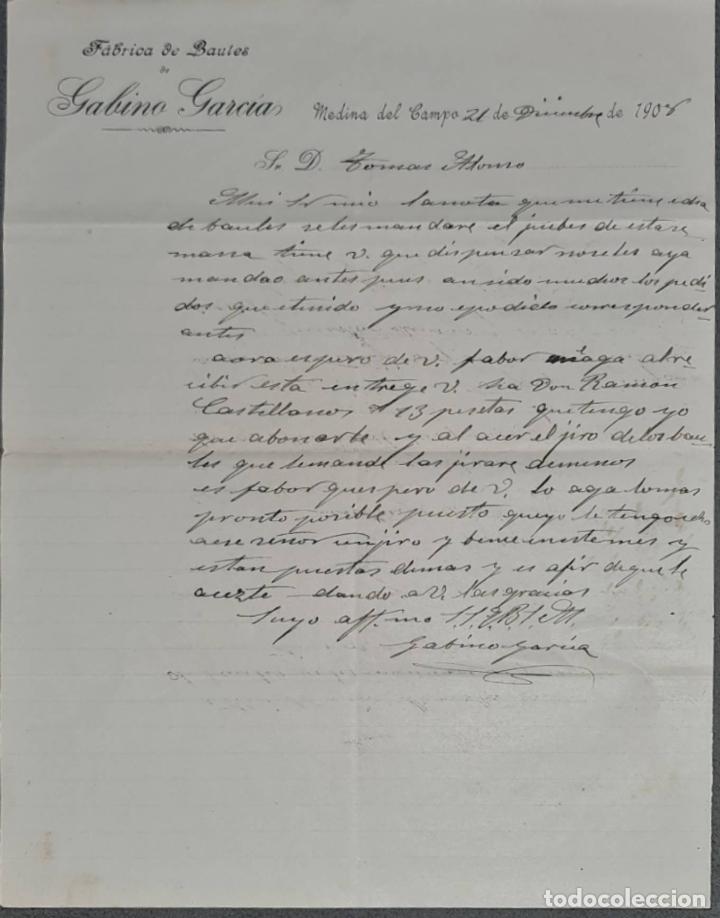 Fábrica de Baules
de
Gabino García
Medina del Campo 21 de Diciembre de 1908
Sr. D. Tomas Alonso
Mui Sr mio la nota que me tiene
de baules seles mandare el juebes de esta se
mana tiene v. que dispensar noseles aya
mandao antes pues an sido muchos los pedi
dos que etenido y no epodido corresponder
antes
aora espero de v. fabor aga al re
cibir esta entrege v. ha Don Ramon
Castellanos 13 pesetas que tengo yo
que abonarle y al acer el jiro de los bau-
les que lemande las jirare demenos
es fabor quespero de v. lo aga lo mas
pronto posible puesto queyo le tengo echo
aese señor un jiro y biene eneste mes y
estan puestas demas y es afin de que le
acezte dando a V. las gracias
Suyo affmo S.S.Q.B.S.M.
Gabino García
todocoleccion